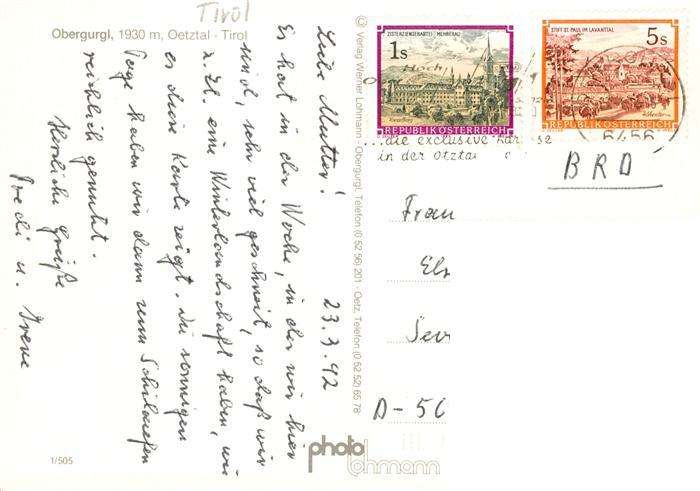 Tirol
Obergurgl, 1930 m, Oetztal - Tirol
Liebe Mutter! 23.3.92
Es hat in der Woche, in der wir hier
sind, sehr viel geschneit, so daß wir
z. Zt. eine Winterlandschaft haben, wie
es diese Karte zeigt. Die sonnigen
Tage haben wir dann zum Schilaufen
reichlich genutzt.
Herzliche Grüße
u. Irene
© Verlag Werner Lohmann - Obergurgl, Telefon (0 52 56) 201 - Oetz, Telefon (0 52 52) 65 78
1/505
photo
lohmann
ZISTERZIENSERABTEI MEHRERAU
1s
REPUBLIK ÖSTERREICH
STIFT ST. PAUL IM LAVANTTAL
5s
REPUBLIK ÖSTERREICH
...die exclusive
in der Ötzta
6456
BRD
Frau
D-56